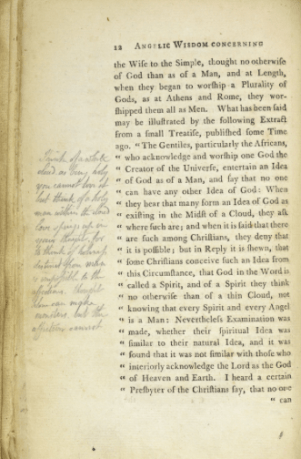 12 ANGELIC WISDOM CONCERNING
the Wiſe to the Simple, thought no otherwiſe
of God than as of a Man, and at Length,
when they began to worſhip a Plurality of
Gods, as at Athens and Rome, they wor-
ſhipped them all as Men. What has been ſaid
may be illuſtrated by the following Extract
from a ſmall Treatiſe, publiſhed ſome Time
ago. “ The Gentiles, particularly the Africans,
“ who acknowledge and worſhip one God the
“ Creator of the Univerſe, entertain an Idea
“ of God as of a Man, and ſay that no one
“ can have any other Idea of God: When
“ they hear that many form an Idea of God as
“ exiſting in the Midſt of a Cloud, they aſk
“ where ſuch are; and when it is ſaid that there
“ are ſuch among Chriſtians, they deny that
“ it is poſſible; but in Reply it is ſhewn, that
“ ſome Chriſtians conceive ſuch an Idea from
“ this Circumſtance, that God in the Word is
“ called a Spirit, and of a Spirit they think
“ no otherwiſe than of a thin Cloud, not
“ knowing that every Spirit and every Angel
“ is a Man: Nevertheleſs Examination was
“ made, whether their ſpiritual Idea was
“ ſimilar to their natural Idea, and it was
“ found that it was not ſimilar with thoſe who
“ interiorly acknowledge the Lord as the God
“ of Heaven and Earth. I heard a certain
“ Preſbyter of the Chriſtians ſay, that no one
“ can
Think of a white
cloud as being holy
you cannot love it
but think of a holy
man within the cloud
love springs up in
your thoughts, for
to think of holiness
distinct from man
is impossible to the
affections. Thought
alone can make
monsters, but the
affections cannot